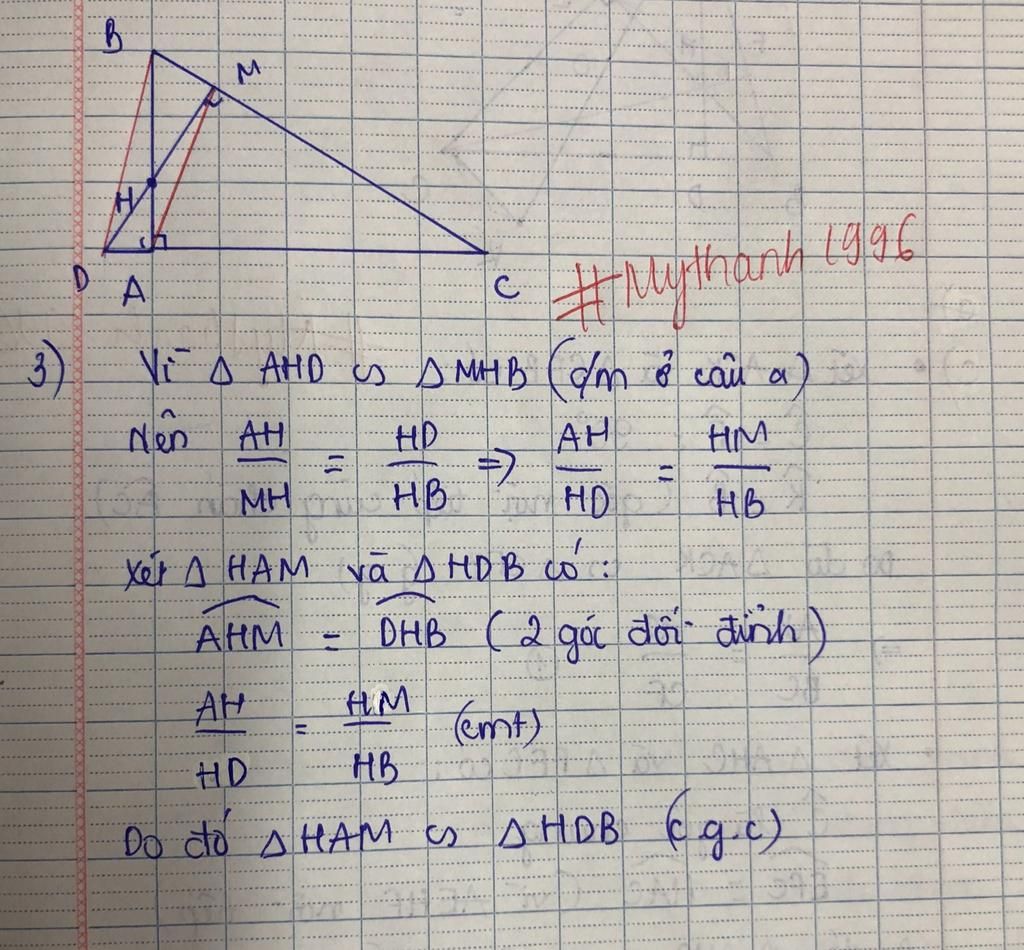 B
M
H
D
A
C
#Mythanh1996
3) Vì Δ AHD ∽ Δ MHB (c/m ở câu a)
Nên AH/MH = HD/HB => AH/HD = HM/HB
Xét Δ HAM và Δ HDB có:
AHM = DHB (2 góc đối đỉnh)
AH/HD = HM/HB (cmt)
Do đó Δ HAM ∽ Δ HDB (c.g.c)